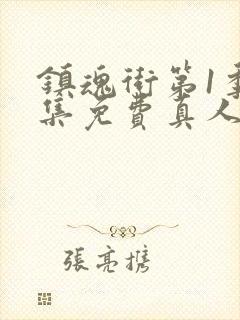 鎮魂街第1季
集免費真人
張亮携